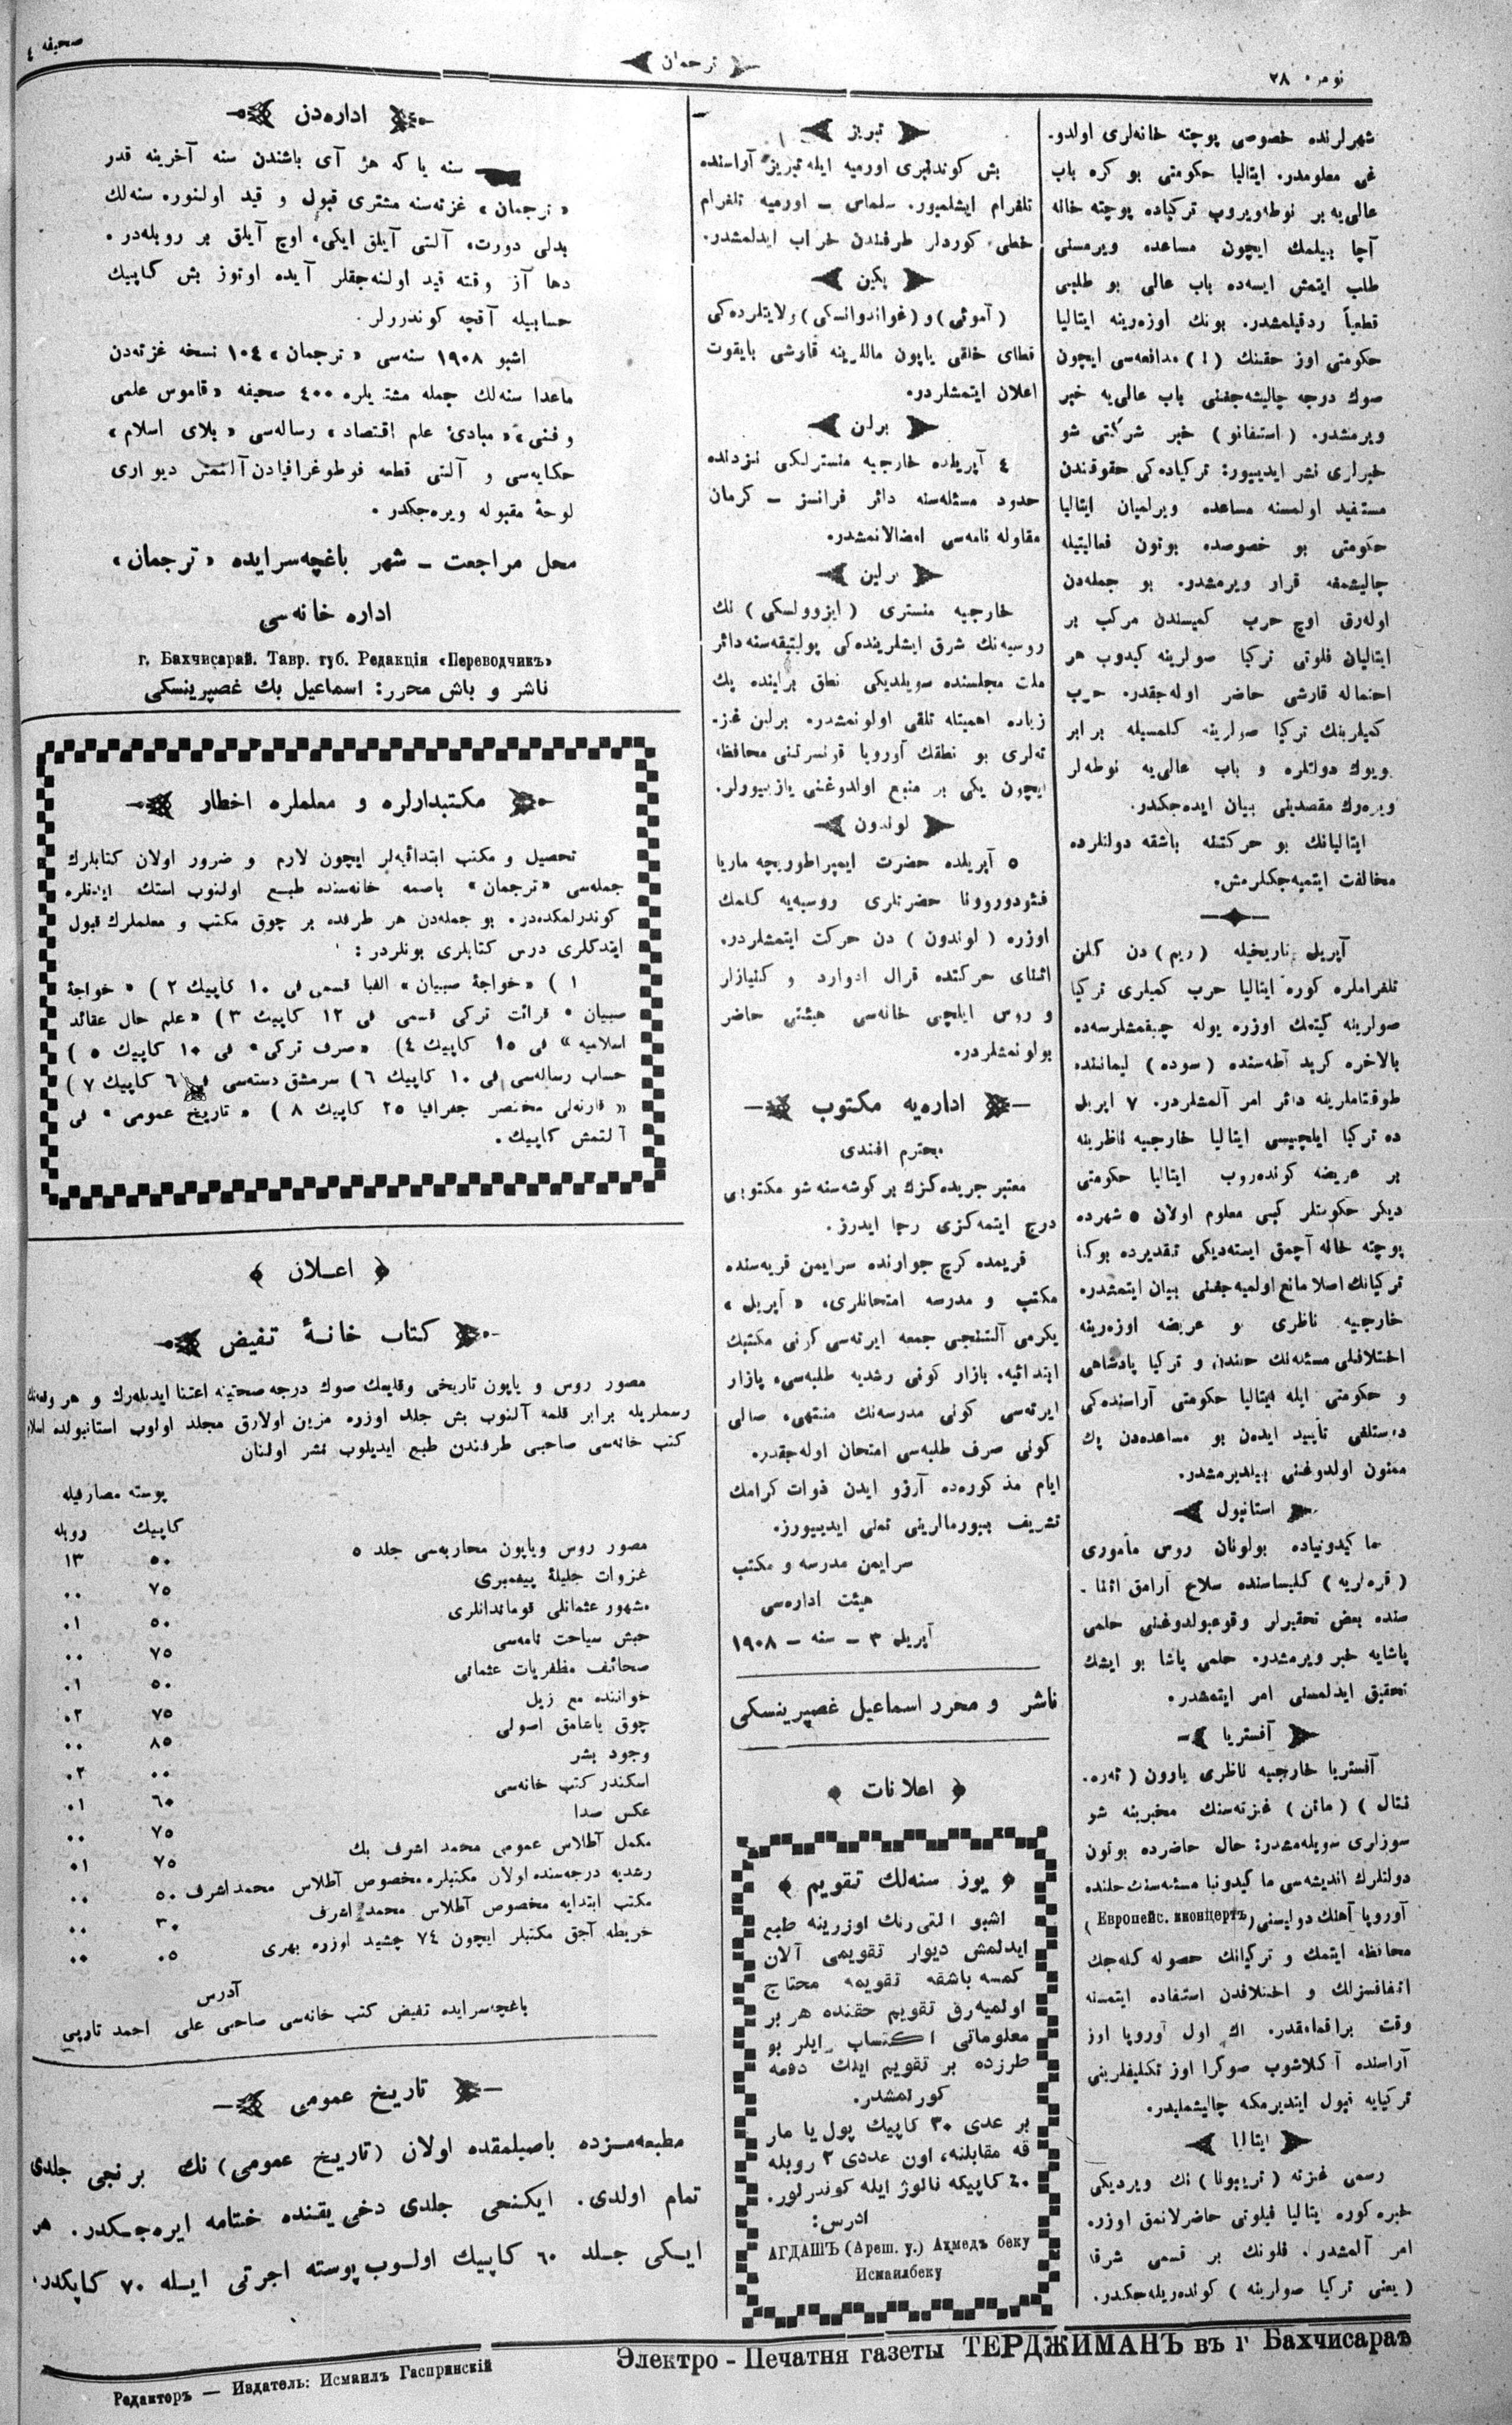 نومره ٢٨
ترجمان
صحیفه ٤
شهرلرنده خصوصی پوچته خانه‌لری اولدو-
غی معلومدر. ایتالیا حکومتی بو کره باب
عالی‌یه بر نوطه ویروپ ترکیاده پوچته خانه
آچا بیلمك ایچون مساعده ویرمسنی
طلب ایتمش ایسه‌ده باب عالی بو طلبی
قطعیاً ردقیلمشدر. بونك اوزه‌رینه ایتالیا
حکومتی اوز حقنك (!) مدافعه‌سی ایچون
صوك درجه چالیشه‌جغنی باب عالی‌یه خبر
ویرمشدر. (استفانو) خبر شرکتی شو
خبرلری نشر ایدییور: ترکیاده‌کی حقوقندن
مستفید اولمسنه مساعده ویرلمیان ایتالیا
حکومتی بو خصوصده بوتون فعالیتیله
چالیشمغه قرار ویرمشدر. بو جمله‌دن
اوله‌رق اوچ حرب کمیسندن مرکب بر
ایتالیان فلوتی ترکیا صولرینه کیدوب هر
احتماله قارشی حاضر اوله‌جقدر. حرب
کمیلرینك ترکیا صولرینه کلمسیله برابر
بویوك دولتلره و باب عالی‌یه نوطه‌لر
ویره‌رك مقصدینی بیان ایده‌جکدر.
ایتالیانك بو حرکتنه باشقه دولتلرده
مخالفت ایتمیه‌جکلرمش.
آپریل تاریخیله (ریم) دن کلن
تلغراملره کوره ایتالیا حرب کمیلری ترکیا
صولرینه کیتمك اوزره یوله چیقمشلرسه‌ده
بالاخره کرید آطه‌سنده (سوده) لیماننده
طوقتاملرینه دائر امر آلمشلردر. ٧ اپریل
ده ترکیا ایلچیسی ایتالیا خارجیه ناظرینه
بر عریضه کونده‌روب ایتالیا حکومتی
دیکر حکومتلر کبی معلوم اولان ٥ شهرده
پوچته خانه آچمق ایسته‌دیکی تقدیرده بوکا
ترکیانك اصلا مانع اولمیه‌جغنی بیان ایتمشدر.
خارجیه ناظری بو عریضه اوزه‌رینه
اختلافلی مسئله‌نك حلندن و ترکیا پادشاهی
و حکومتی ایله ایتالیا حکومتی آراسنده‌کی
دوستلغی تأیید ایدن بو مساعده‌دن پك
ممنون اولدوغنی بیلدیرمشدر.
استانبول
ماکیدونیاده بولونان روس مأموری
(قره‌لریه) کلیساسنده سلاح آرامق اثنا-
سنده بعض تحقیرلر وقوعبولدوغنی حلمی
پاشایه خبر ویرمشدر. حلمی پاشا بو ایشك
تحقیق ایدلمسنی امر ایتمشدر.
آفستریا
آفستریا خارجیه ناظری بارون (ئه‌ره-
نتال) (ماتن) غزته‌سنك مخبرینه شو
سوزلری سویله‌مشدر: حال حاضرده بوتون
دولتلرك اندیشه‌سی ماکیدونیا مسئله‌سنك حلنده
آوروپا آهنك دولیسنی (Европейс. вконцертъ)
محافظه ایتمك و ترکیانك حصوله کله‌جك
اتفاقسزلك و اختلافدن استفاده ایتمسنه
وقت براقمامقدر. اك اول آوروپا اوز
آراسنده آکلاشوب صوکرا اوز تکلیفلرینی
ترکیایه قبول ایتدیرمکه چالیشملیدر.
ایتالیا
رسمی غزته (تریبونا) نك ویردیکی
خبره کوره ایتالیا فیلوتی حاضرلانمق اوزره
امر آلمشدر. فلونك بر قسمی شرقا
(یعنی ترکیا صولرینه) کونده‌ریله‌جکدر.
تبریز
بش کوندنبری اورمیه ایله تبریز آراسنده
تلغرام ایشلمیور. سلماس — اورمیه تلغرام
خطی کوردلر طرفندن خراب ایدلمشدر.
پکین
(آموئی) و (غواندوانسکی) ولایتلرده‌کی
قطای خلقی یاپون ماللرینه قارشی بایقوت
اعلان ایتمشلردر.
برلن
٤ آپریلده خارجیه منسترلکی نزدنده
حدود مسئله‌سنه دائر فرانسز — کرمان
مقاوله نامه‌سی امضالانمشدر.
برلین
خارجیه منستری (ایزوولسکی) نك
روسیه‌نك شرق ایشلرینده‌کی پولیتیقه‌سنه دائر
ملت مجلسنده سویلدیکی نطق براینده پك
زیاده اهمیتله تلقی اولونمشدر. برلین غز-
ته‌لری بو نطقك آوروپا قونسرتنی محافظه
ایچون یکی بر منبع اولدوغنی یازییورلر.
لوندون
٥ آپریلده حضرت ایمپراطوریچه ماریا
فئودوروونا حضرتلری روسیه‌یه کلمك
اوزره (لوندون) دن حرکت ایتمشلردر.
اثنای حرکتده قرال ادوارد و کنیازلر
و روس ایلچی خانه‌سی هیئتی حاضر
بولونمشلردر.
اداره‌یه مکتوب
محترم افندی
معتبر جریده‌کزك بر کوشه‌سنه شو مکتوبی
درج ایتمه‌کزی رجا ایدرز.
قریمده کرچ جوارنده سرایمن قریه‌سنده
مکتب و مدرسه امتحانلری، «آپریل»
یکرمی آلتنجی جمعه ایرته‌سی کونی مکتبك
ابتدائیه. بازار کونی رشدیه طلبه‌سی، پازار
ایرته‌سی کونی مدرسه‌نك منتهی، صالی
کونی صرف طلبه‌سی امتحان اوله‌جقدر.
ایام مذکوره‌ده آرزو ایدن ذوات کرامك
تشریف بیورمالرینی تمنی ایدییورز.
سرایمن مدرسه و مکتب
هیئت اداره‌سی
آپریل ٣ — سنه — ١٩٠٨
ناشر و محرر اسماعیل غصپرینسکی
اعلانات
یوز سنه‌لك تقویم
اشبو التی رنك اوزرینه طبع
ایدلمش دیوار تقویمی آلان
کمسه باشقه تقویمه محتاج
اولمیه‌رق تقویم حقنده هر بر
معلوماتی اکتساب ایلر بو
طرزده بر تقویم ایلك دفعه
کورلمشدر.
بر عدی ٣٠ کاپیك پول یا مار
قه مقابلنه، اون عددی ٢ روبله
٤٠ کاپیکه نالوژ ایله کوندرلور.
ادرس:
АГДАШЪ (Ареш. у.) Ахмедъ беку
Исмаилбеку
اداره‌دن
سنه یا که هر آی باشندن سنه آخرینه قدر
«ترجمان» غزته‌سنه مشتری قبول و قید اولنوره سنه‌لك
بدلی دورت، آلتی آیلق ایکی، اوچ آیلق بر روبله‌در.
دها آز وقته قید اولنه‌جقلر آیده اوتوز بش کاپیك
حسابیله آقچه کوندرورلر.
اشبو ١٩٠٨ سنه‌سی «ترجمان» ١٠٤ نسخه غزته‌دن
ماعدا سنه‌لك جمله مشتریلره ٤٠٠ صحیفه «قاموس علمی
و فنی»، «مبادئ علم اقتصاد» رساله‌سی «بلای اسلام»
حکایه‌سی و آلتی قطعه فوطوغرافیادن آلنمش دیواری
لوحهٔ مقبوله ویره‌جکدر.
محل مراجعت — شهر باغچه‌سرایده «ترجمان»
اداره خانه‌سی
г. Бахчисарай. Тавр. губ. Редакція «Переводчикъ»
ناشر و باش محرر: اسماعیل بك غصپرینسکی
مکتبدارلره و معلملره اخطار
تحصیل و مکتب ابتدائیه‌لر ایچون لازم و ضرور اولان کتابلرك
جمله‌سی «ترجمان» باصمه خانه‌سنده طبع اولنوب استك ایدنلره
کوندرلمکده‌در. بو جمله‌دن هر طرفده بر چوق مکتب و معلملرك قبول
ایتدکلری درس کتابلری بونلردر:
١) «خواجهٔ صبیان» الفبا قسمی فی ١٠ کاپیك ٢) «خواجهٔ
صبیان» قرائت ترکی قسمی فی ١٢ کاپیك ٣) «علم حال عقائد
اسلامیه» فی ١٥ کاپیك ٤) «صرف ترکی» فی ١٠ کاپیك ٥)
حساب رساله‌سی فی ١٠ کاپیك ٦) سرمشق دسته‌سی فی ٦ کاپیك ٧)
«قارنه‌لی مختصر جغرافیا ٢٥ کاپیك ٨) «تاریخ عمومی» فی
آلتمش کاپیك.
اعلان
کتاب خانهٔ تفیض
مصور روس و یاپون تاریخی وقایعك صوك درجه صحتینه اعتنا ایدیله‌رك و هر وقعه‌نك
رسملریله برابر قلمه آلنوب بش جلد اوزره مزین اولارق مجلد اولوب استانبولده اسلام
کتب خانه‌سی صاحبی طرفندن طبع ایدیلوب نشر اولنان
پوسته مصارفیله
کاپیك روبله
مصور روس ویاپون محاربه‌سی جلد ٥ ٥٠ ١٣
غزوات جلیلهٔ پیغمبری ٧٥ ٠٠
مشهور عثمانلی قوماندانلری ٥٠ ٠١
حبش سیاحت نامه‌سی ٧٥ ٠٠
صحائف مظفریات عثمانی ٥٠ ٠١
خواننده مع زیل ٧٥ ٠٢
چوق یاشامق اصولی ٨٥ ٠٠
وجود بشر ٠٠ ٠٢
اسکندر کتب خانه‌سی ٦٠ ٠١
عکس صدا ٧٥ ٠٠
مکمل آطلاس عمومی محمد اشرف بك ٧٥ ٠١
رشدیه درجه‌سنده اولان مکتبلره مخصوص آطلاس محمد اشرف ٥٠ ٠٠
مکتب ابتدایه مخصوص آطلاس محمد اشرف ٣٠ ٠٠
خریطه آجق مکتبلر ایچون ٧٤ چشید اوزره بهری ٠٥ ٠٠
آدرس
باغچه‌سرایده تفیض کتب خانه‌سی صاحبی علی احمد تارپی
تاریخ عمومی
مطبعه‌مزده باصیلمقده اولان (تاریخ عمومی) نك برنجی جلدی
تمام اولدی. ایکنجی جلدی دخی یقنده ختامه ایره‌جکدر. هر
ایکی جلد ٦٠ کاپیك اولوب پوسته اجرتی ایله ٧٠ کاپکدر.
Электро - Печатня газеты ТЕРДЖИМАНЪ въ г Бахчисараѣ
Редакторъ — Издатель: Исмаилъ Гаспринскій